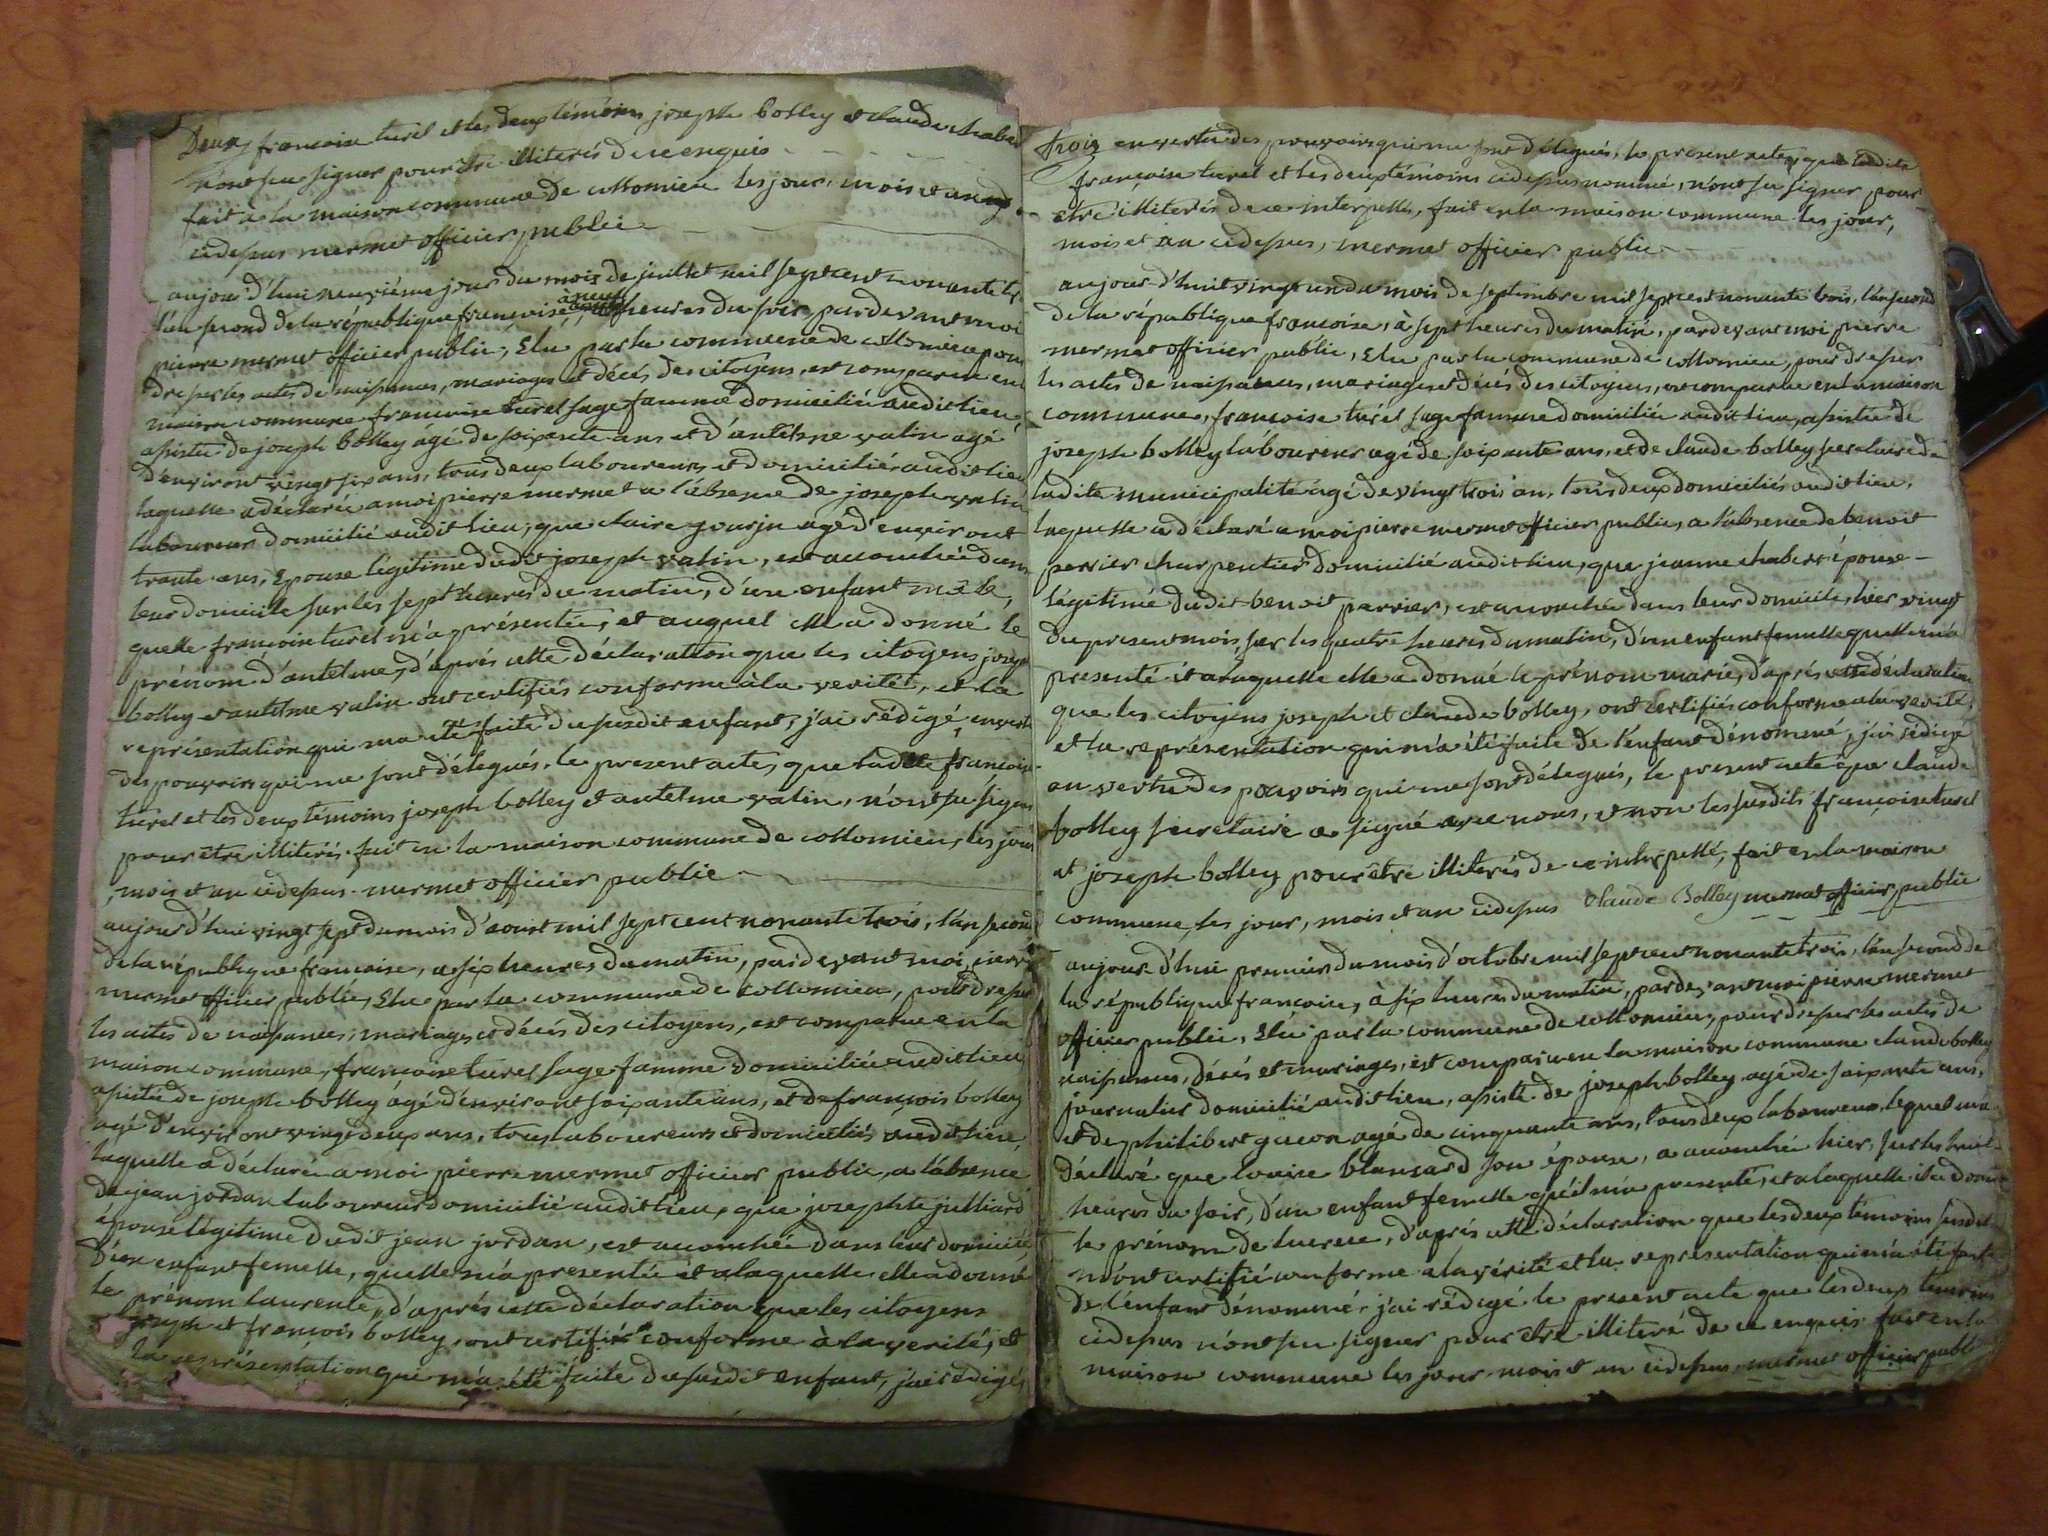 Deux francoise turel et les deux témoins joseph bolley et claude chabert
n'ont seu signer pour être illiterés de ce enquis
fait à la maison commune de collomieu les jour, mois et an
cidessus mermet officier public
aujour d'hui neuvième jour du mois de juillet mil sept cent nonante
l'an second de la république francoise, heures du soir, pardevant moi
pierre mermet officier public, Elu par la commune de collomieu pour
dresser les actes de naissances, mariages et décés de citoyens, est comparue en
maison commune francoise turel sage famme domiciliée audit lieu
assistée de joseph bolley âgé de soixante ans et d'antelme valin agé
d'environt vingt six ans, tous deux laboureurs et domiciliés audit lieu
laquelle a déclarée a moi pierre mermet a l'absence de joseph valin
laboureur domicilié audit lieu, que claire gourju agé d'environt
trante ans, Epouse légitime dudit joseph valin, est accouchée dans
leur domicile sur les sept heures du matin, d'un enfant mâle,
quelle francoise turel m'a présentée, et auquel elle a donné le
prénom d'antelme, d'aprés cette déclaration que les citoyens joseph
bolley et antelme valin ont certifiés conforme à la verités, et la
représentation qui ma été faite du susdit enfant, j'ai rédigé, en vertu
des pouvoirs qui me sont délegués, le present acte, que ladite francoise
turel et les deux témoins joseph bolley et antelme valin, n'ont seu signer
pour être illiterés. fait en la maison commune de collomieu, les jour
, mois et an cidessus. mermet officier public
aujourd'hui vingt sept du mois d'aoust mil sept cent nonante trois, l'an second
de la république francoise, a six heures du matin, pardevant moi, pierre
mermet officier public, Elu par la commune de collomieu, pour dresser
les actes de naissances, mariages et décés des citoyens, est comparue en la
maison commune, francoise turel sage famme domiciliée audit lieu
assistée de joseph bolley âgé d'environt soixante ans, et de francois bolley
agé d'environt vingt deux ans, tous laboureurs et domiciliés audit lieu,
laquelle a déclaré a moi pierre mermet officier public, a l'absence
de jean jordan laboureur domicilié audit lieu, que josephte julliard
épouse légitime dudit jean jordan, est accouchée dans leur domicile
d'un enfant femelle, quelle m'a presentée et a laquelle elle a donné
le prénom laurence, d'aprés cette déclaration que les citoyens
joseph et francois bolley, ont certifiés conforme à la verité, et
la représentation qui m'a été faite du susdit enfant, j'ai rédigé,
trois en vertu des pouvoirs qui me sont délegués, le present acte, que ladite
françoise turel et les deux témoins cidessus nommé, n'ont su signer pour
être illiterés de ce interpellés, fait en la maison commune les jour,
mois et an cidessus, mermet officier public
aujour d'huit vingt un du mois de septembre mil sept cent nonante trois, l'an second
de la république francoise, à sept heures du matin, pardevant moi pierre
mermet officier public, Elu par la commune de collomieu, pour dresser
les actes de naissances, mariages et décés des citoyens, est comparue en la maison
commune, francoise turel sage famme domiciliée audit lieu, assistée de
joseph bolley laboureur agé de soixante ans, et de claude bolley secretaire de
ladite municipalité âgé de vingt trois an, tous deux domiciliés audit lieu,
laquelle a déclaré a moi pierre mermet officier public, a l'absence de benoit
perrier charpentier domicilié audit lieu, que jeanne chabert épouse
légitime dudit benoit perrier, est accouchée dans leur domicile, hier vingt
du present mois, sur les quatre heures du matin, d'un enfant femelle quelle m'a
presenté et a laquelle elle a donné le prénom marie, d'aprés cette déclaration
que les citoyens joseph et claude bolley, ont certifiés conforme a la verité,
et la représentation qui m'a été faite de l'enfant dénommé, j'ai rédigé
en vertu des pouvoirs qui me sont délegués, le present acte que claude
bolley secretaire a signé avec nous, et non les susdits françoise turel
et joseph bolley pour être illiterés de ce interpellé, fait en la maison
commune, les jour, mois et an cidessus Claude Bolley mermet officier public
aujour d'hui premier du mois d'octobre mil sept cent nonante trois, l'an second de
la république francoise, à six heures du matin, pardevant moi pierre mermet
officier public, Elu par la commune de collomieu, pour dresser les actes de
naissances, décés et mariages, est comparu en la maison commune claude bolley
journalier domicilié audit lieu, assisté de joseph bolley agé de soixante ans,
et de philibert gucon agé de cinquante ans, tous deux laboureur, lequel m'a
déclaré que louise blansard son épouse, a accouchée hier, sur les huit
heures du soir, d'un enfant femelle qu'il m'a presenté, et a laquelle il a donné
le prénom de lucrece, d'aprés cette déclaration que les deux témoins susdit
m'ont certifié conforme a la vérité et la représentation qui m'a été faite
de l'enfant dénommé, j'ai rédigé le present acte que les deux temoins
cidessus n'ont seu signer pour être illiteré de ce enquis fait en la
maison commune les jour, mois et an cidessus, mermet officier public